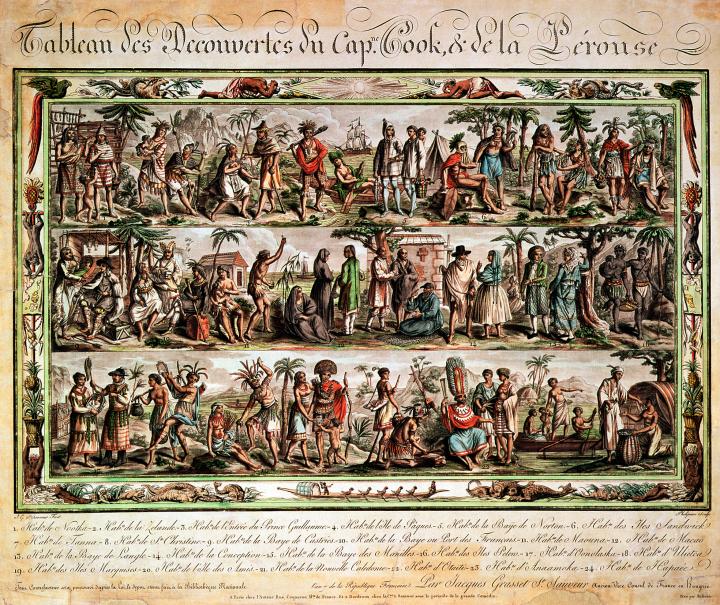 Tableau des Decouvertes du Cap.ne Cook, & de la Pérouse
1. Hab.s de Nootka-2. Hab.s de la Zelande-3. Hab.s de l'Entrée du Prince Guillaume-4. Hab.s de l'Isle de Pâques-5. Hab.s de la Baye de Norton-6. Hab.ns des Iles Sandwich
7. Hab.s de Tanna-8. Hab.s de S.te Christine-9. Hab.s de la Baye de Castries-10. Hab.s de la Baye ou Port des Français-11. Hab.s de Maouna-12. Hab.s de Macao
13. Hab.s de la Baye de Langle-14. Hab.s de la Conception-15. Hab.s de la Baye des Manilles-16. Hab.s des Iles Pelew-17. Hab.s d'Oonolaska-18. Hab.s d'Ulietea
19. Hab.s des Iles Marquises-20. Hab.s de l'Isle des Amis-21. Hab.s de la Nouvelle Caledonie-22. Hab.s d'Otaïti-23. Hab.s d'Anaamoka-24. Hab.s de l'Hapaée
de la République Française Par Jacques Grasset S.t Sauveur Ancien Vice Consul de France en Hongrie
A Paris chez l'Auteur